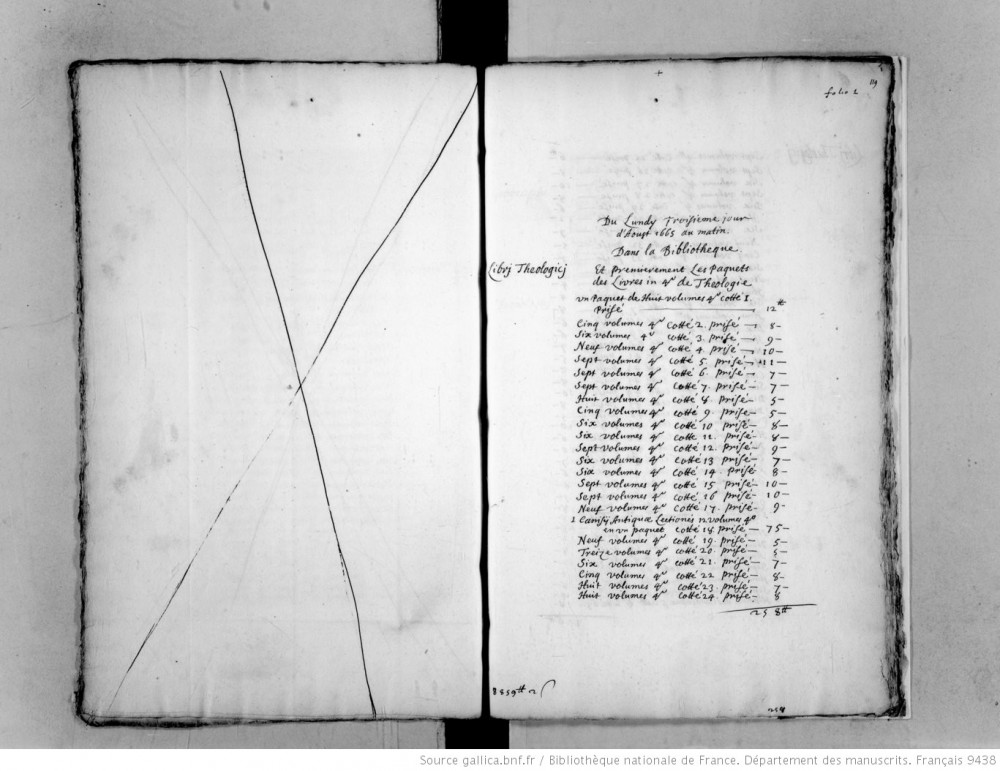 folio 2
119
Du Lundy Troisieme jour
d'Aoust 1665 au matin.
Dans la Bibliotheque
Librj Theologicj
Et premierement Les Paquets
des Livres in 4º de Theologie
vn Paquet de Huit volumes 4º cotté 1
Prisé 12 tt
Cinq volumes 4º Cotté 2. prisé 8
Six volumes 4º cotté 3. prisé 9
Neuf volumes 4º cotté 4. prisé 10
Sept volumes 4º cotté 5. prisé 11
Sept volumes 4º cotté 6. prisé 7
Sept volumes 4º Cotté 7. prisé 7
Huit volumes 4º cotté 8. prisé 5
Cinq volumes 4º cotté 9. prisé 5
Six volumes 4º cotté 10 prisé 8
Six volumes 4º cotté 11. prisé 8
Sept volumes 4º cotté 12. prisé 9
Six volumes 4º cotté 13 prisé 7
Six volumes 4º cotté 14 prisé 8
Sept volumes 4º cotté 15 prisé 10
Sept volumes 4º cotté 16 prisé 10
Neuf volumes 4º cotté 17. prisé 9
Canisij Antiquæ Lectiones volumes 4º
en vn paquet cotté 18 prisé 75
Neuf volumes 4º cotté 19. prisé 5
Treize volumes 4º cotté 20. prisé 5
Six volumes 4º cotté 21. prisé 7
Cinq volumes 4º cotté 22 prisé 8
Huit volumes 4º cotté 23. prisé 7
Huit volumes 4º cotté 24. prisé 8
258 tt
258
Source gallica.bnf.fr / Bibliothèque nationale de France. Département des manuscrits. Français 9438